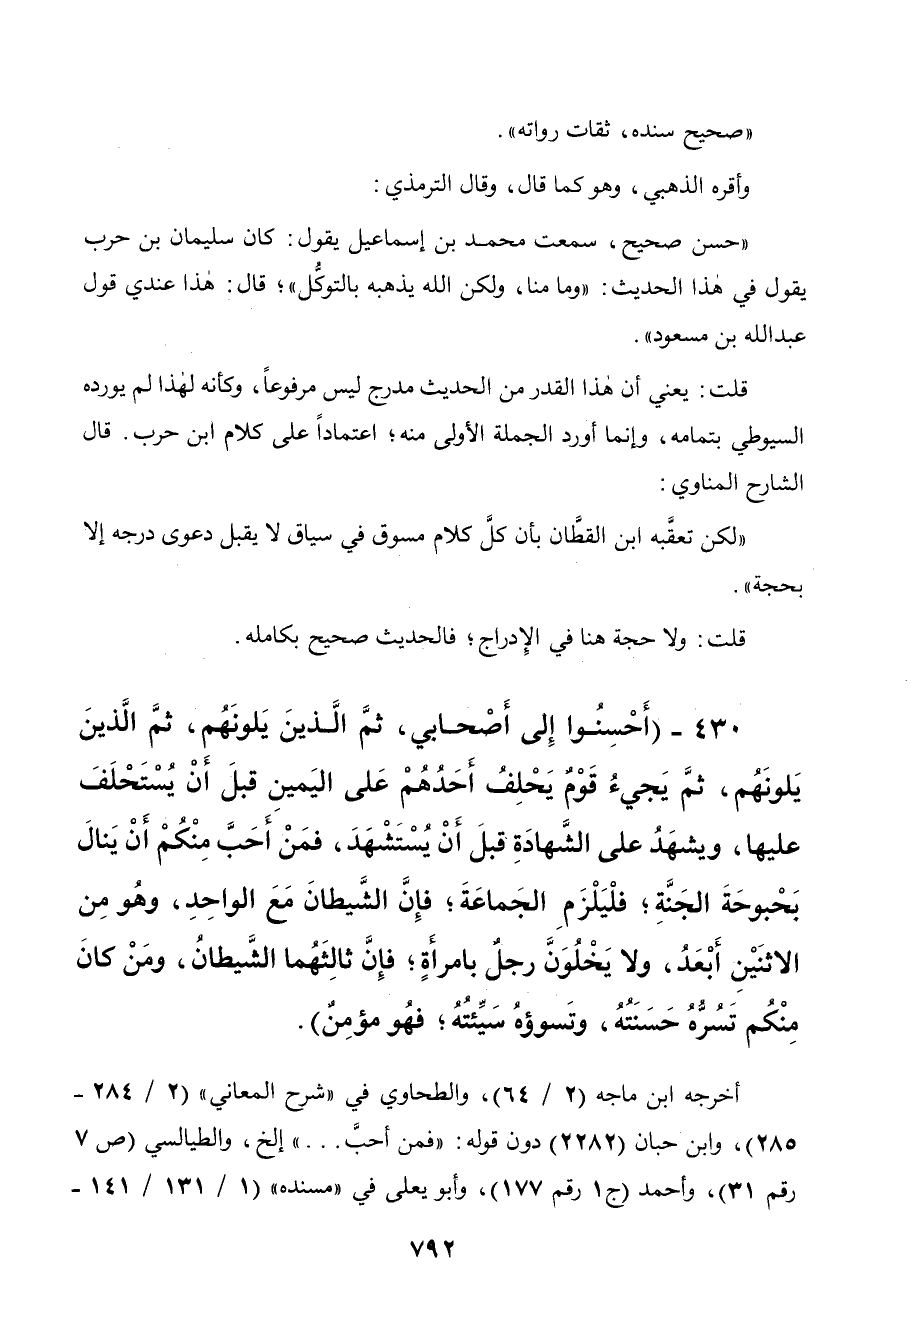 «صحيح سنده، ثقات رواته».
وأقره الذهبي، وهو كما قال، وقال الترمذي:
«حسن صحيح، سمعت محمد بن إسماعيل يقول: كان سليمان بن حرب
يقول في هٰذا الحديث: «وما منا، ولكن الله يذهبه بالتوكُّل»؛ قال: هٰذا عندي قول
عبدالله بن مسعود».
قلت: يعني أن هٰذا القدر من الحديث مدرج ليس مرفوعاً، وكأنه لهٰذا لم يورده
السيوطي بتمامه، وإنما أورد الجملة الأولى منه؛ اعتماداً على كلام ابن حرب. قال
الشارح المناوي:
«لكن تعقَّبه ابن القطَّان بأن كلَّ كلام مسوق في سياق لا يقبل دعوى درجه إلا
بحجة».
قلت: ولا حجة هنا في الإدراج؛ فالحديث صحيح بكامله.
٤٣٠ - (أَحْسِنُوا إِلى أَصْحابي، ثمَّ الَّذينَ يَلونَهُم، ثمَّ الَّذينَ
يَلونَهُم، ثمَّ يَجيءُ قَوْمٌ يَحْلِفُ أَحَدُهُمْ عَلى اليَمينِ قبلَ أَنْ يُسْتَحْلَفَ
عليها، ويشهَدُ على الشَّهادَةِ قبلَ أَنْ يُسْتَشْهَدَ، فمَنْ أَحَبَّ مِنْكُمْ أَنْ يَنالَ
بَحْبوحَةَ الجَنَّةِ؛ فلْيَلْزَمِ الجَماعَةَ؛ فإِنَّ الشَّيطانَ مَعَ الواحِدِ، وهُو مِن
الاثنَيْنِ أَبْعَدُ، ولا يَخْلُوَنَّ رجلٌ بامرأَةٍ؛ فإِنَّ ثالِثَهُما الشَّيطانُ، ومَنْ كانَ
مِنْكُم تَسُرُّهُ حَسَنَتُهُ، وتَسوؤهُ سَيِّئَتُهُ؛ فهُو مؤمِنٌ).
أخرجه ابن ماجه (٢ / ٦٤)، والطحاوي في «شرح المعاني» (٢ / ٢٨٤ -
٢٨٥)، وابن حبان (٢٢٨٢) دون قوله: «فمن أحبَّ...» إلخ، والطيالسي (ص ٧
رقم ٣١)، وأحمد (ج١ رقم ١٧٧)، وأبو يعلى في «مسنده» (١ / ١٣١ / ١٤١ -
٧٩٢